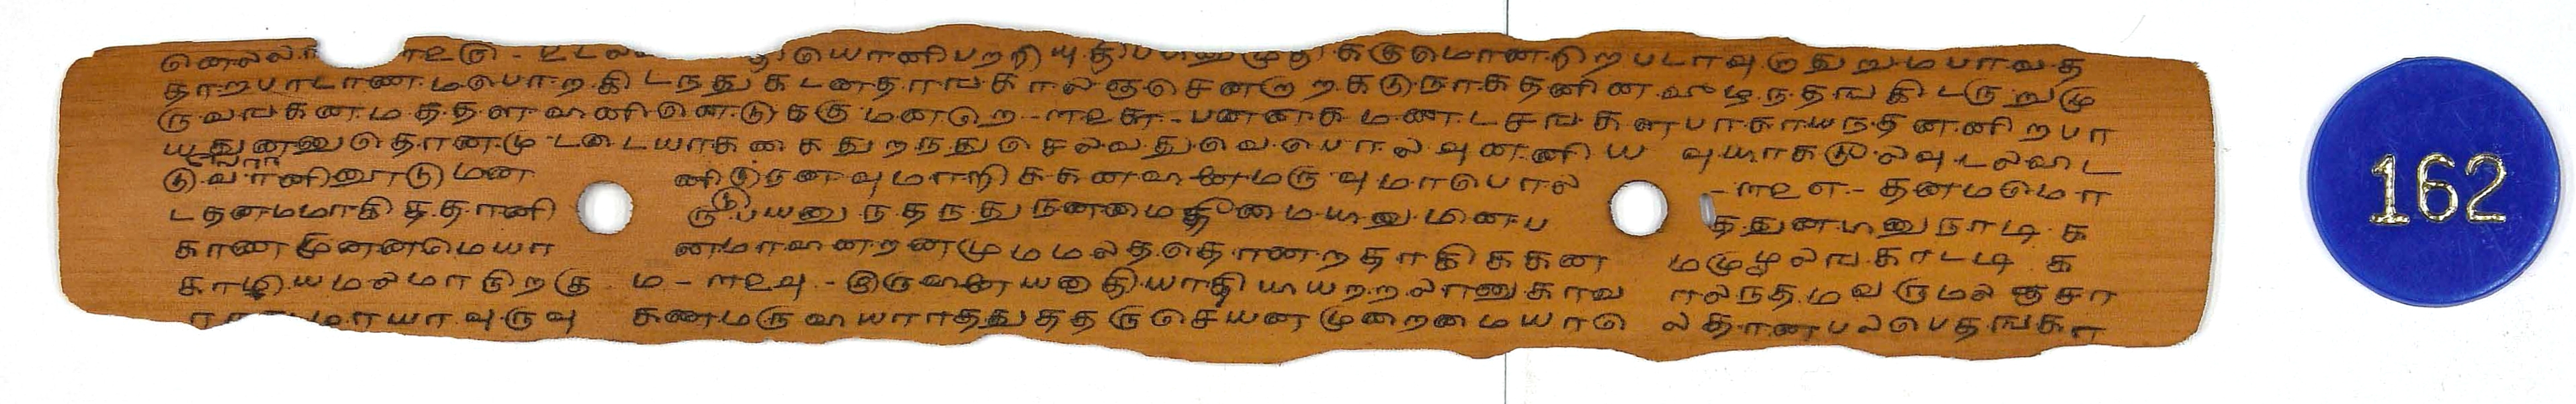 னெலலா ௱௨௫ - உடல யொனிபறறி யுதிப கருமொன நிறபடாவுருதுறுமபாவத
தாறபாடாண மபொறகிடநதுகடனதாஙகாலஞசெனறுறகடுநாகதனின வாழநதஙகிடருறுமு
ருவஙகணமததளவனினெடுககுமனறெ - ௱௨௬ - பனனாகமணடசஙகளபாகாயநதனனிறபா
யதுனனுதொனமுடடையாகனைகதுறநதுசெலவதுவெபொலவுனனிய வுயாகடொலவுடலவிட
டுவானினூடுமன னிடுநனவுமாறிககனவினைமருவுமாபொல - ௱௨௭ - தனமமொ
டதனமமாகி தததானி ருபயனுநதநதுநனமைதீமையுனுமினப ததுனபனுநாடி க
காணமுனனமெயா னமாவினறனமுமமலததொணறதாகிககன மமுழலஙகாடடி க
காழியமலமாநிறகு ம - ௱௨௮ - இருவினையனாதியாதியியறறலானுகாவ ாலநதமவருமலஞசா
மாயாவுருவு கணமருவியாாததுததருசெயனமுறைமையாெ லதானபலபெதஙகள
162